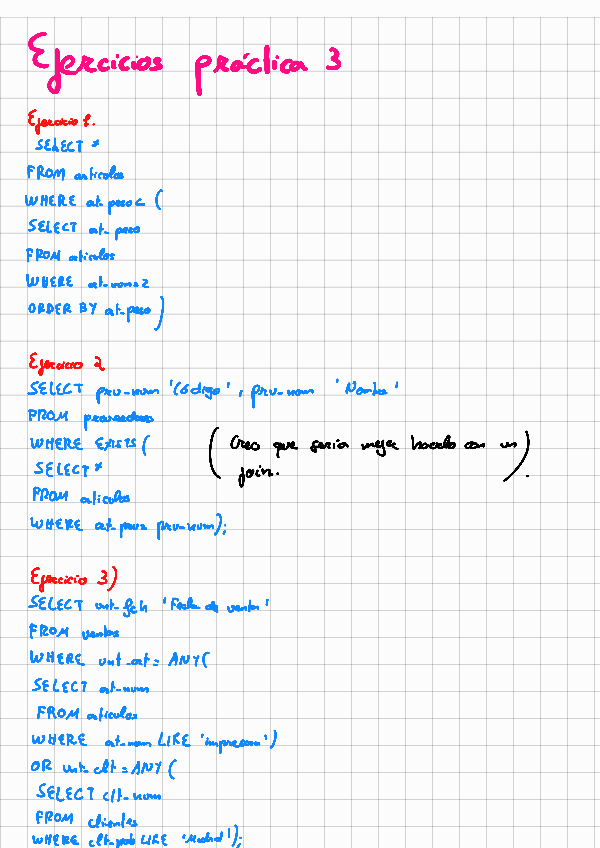 Ejercicios práctica 3
Ejercicio 1.
SELECT *
FROM articulos
WHERE art_peso < (
SELECT art_peso
FROM articulos
WHERE art_num=2
ORDER BY art_peso)
Ejercicio 2
SELECT prv_num 'Código', prv_nom 'Nombre'
FROM proveedores
WHERE EXISTS (
(Creo que sería mejor hacerlo con un
join.)
SELECT *
FROM articulos
WHERE art_prv= prv_num);
Ejercicio 3)
SELECT vnt_fch 'Fecha de venta'
FROM ventas
WHERE vnt_art = ANY(
SELECT art_num
FROM articulos
WHERE art_nom LIKE 'impresora')
OR vnt_clt = ANY(
SELECT clt_num
FROM clientes
WHERE clt_pob LIKE 'Madrid');